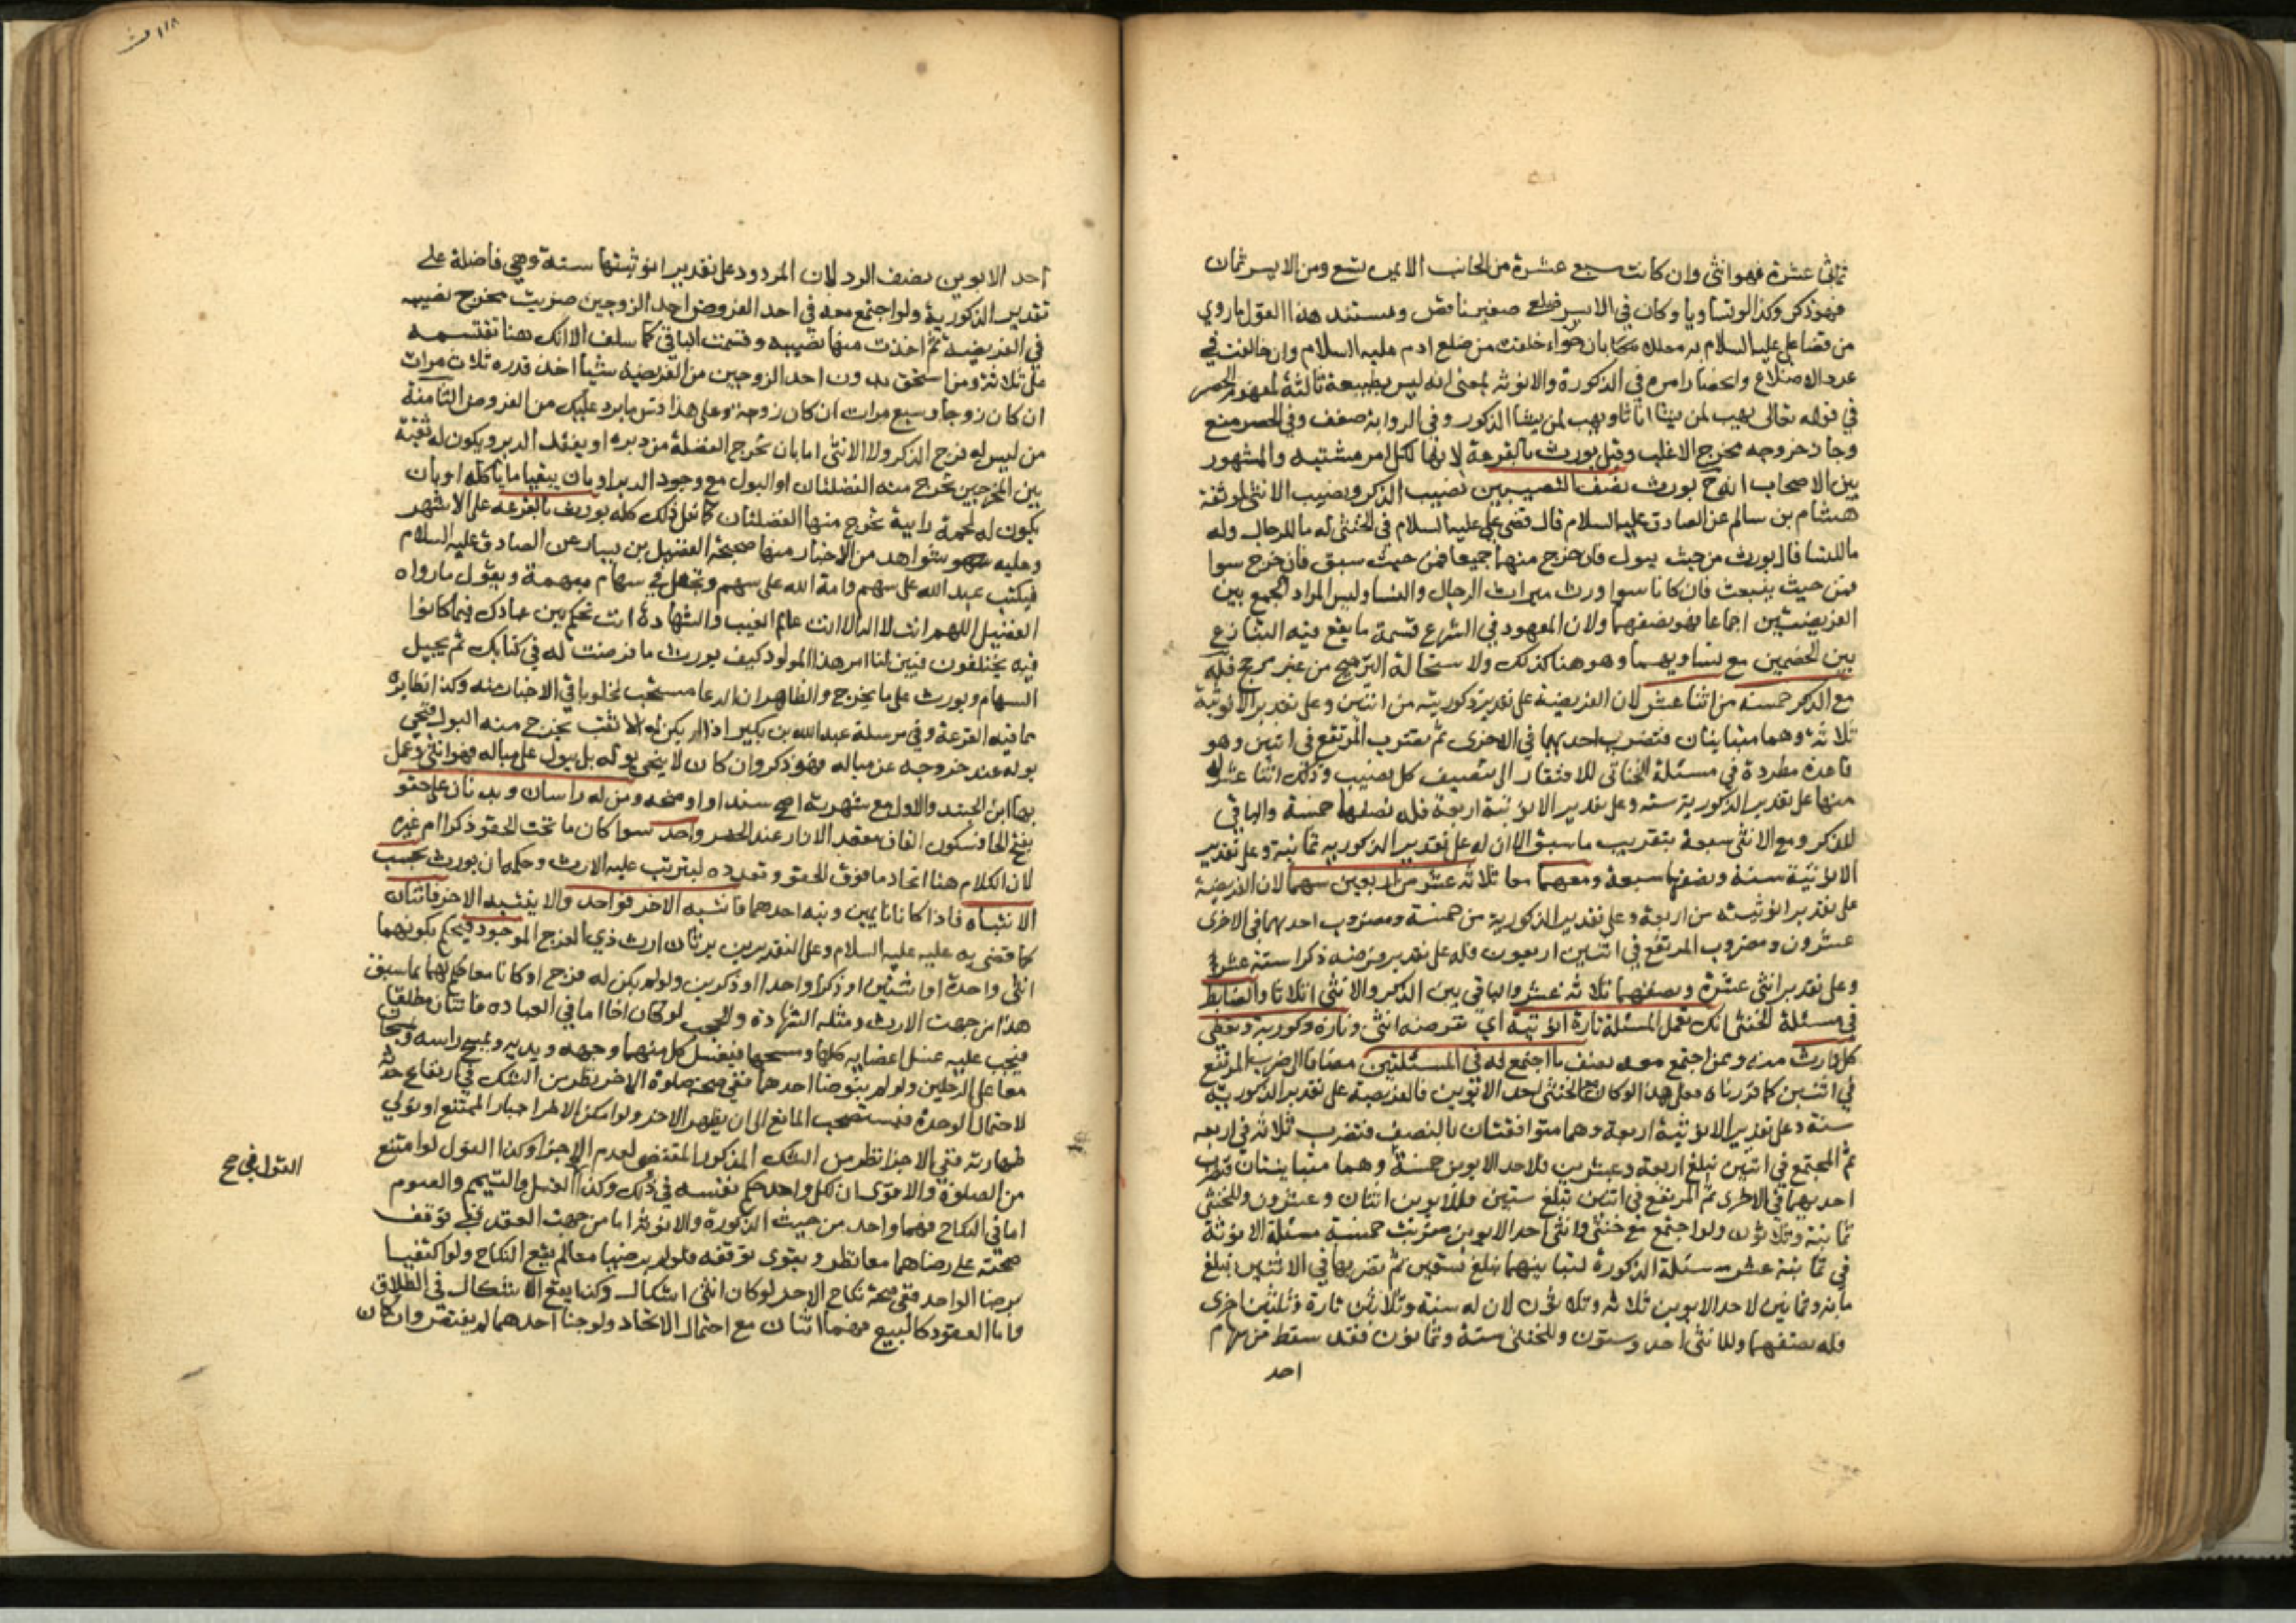 ثماني عشرة فهو انثى وان كانت سبع عشرة من الجانب الايمن تسع ومن الايسر ثمان
فهو ذكر وكذا لو تساويا وكان في الايسر ضلع صغير ناقص ومستند هذا القول ماروي
من قضا علي عليه السلام به معللا بان حواء خلقت من ضلع ادم عليه السلام وان خالفت في
عدد الاضلاع وانحصار امره في الذكورة والانوثه بمعنى انه ليس بطبيعة ثالثة لمفهوم الحصر
في قوله تعالى يهب لمن يشا اناثا ويهب لمن يشا الذكور وفي الرواية ضعف وفي الحصر منع
وجاز خروجه مخرج الاغلب وقيل يورث بالقرعة لانها لكل امر مشتبه والمشهور
بين الاصحاب انه ح يورث نصف النصيبين نصيب الذكر ونصيب الانثى لموثقة
هشام بن سالم عن الصادق عليه السلام قال قضى علي عليه السلام في الخنثى له ما للرجال وله
ما للنسا قال يورث من حيث يبول فان خرج منهما جميعا فمن حيث سبق فان خرج سوا
فمن حيث ينبعث فان كانا سوا ورث ميراث الرجال والنسا وليس المراد الجمع بين
الفريضتين اجماعا فهو نصفهما ولان المعهود في الشرع قسمة ما يقع فيه التنازع
بين الخصمين مع تساويهما وهو هنا كذلك ولاستحالة الترجيح من غير مرجح فله
مع الذكر خمسة من اثنا عشر لان الفريضة على تقدير ذكوريته من اثنين وعلى تقدير الانوثية
ثلاثة وهما متباينان فتضرب احديهما في الاخرى ثم تضرب المرتفع في اثنين وهو
قاعدة مطردة في مسئلة الخناثى للافتقار الى تنصيف كل نصيب وذلك اثنا عشر له
منها على تقدير الذكورية ستة وعلى تقدير الانوثية اربعة فله نصفها خمسة والباقي
للذكر ومع الانثى سبعة بتقريب ما سبق الا ان له على تقدير الذكورية ثمانية وعلى تقدير
الانوثية ستة ونصفها سبعة ومعهما معا ثلاثة عشر من اربعين سهما لان الفريضة
على تقدير انوثيته من اربعة وعلى تقدير الذكورية من خمسة ومضروب احديهما في الاخرى
عشرون ومضروب المرتفع في اثنين اربعون فله على تقدير فرضه ذكرا ستة عشر
وعلى تقدير انثى عشرة ونصفهما ثلاثة عشر والباقي بين الذكر والانثى اثلاثا والضابط
في مسئلة الخنثى انك تعمل المسئلة تارة انوثية اي تفرضه انثى وتارة ذكورية وتعطي
كل وارث منه وممن اجتمع معه نصف ما اجتمع له في المسئلتين مضافا الى ضرب المرتفع
في اثنين كما قررناه فعلى هذا لو كان مع الخنثى احد الابوين فالفريضة على تقدير الذكورية
ستة وعلى تقدير الانوثية اربعة وهما متوافقتان بالنصف فتضرب ثلاثة في اربعة
ثم المجتمع في اثنين تبلغ اربعة وعشرين فلاحد الابوين خمسة وهما متباينتان فتضرب
احديهما في الاخرى ثم المرتفع في اثنين تبلغ ستين فللابوين اثنتان وعشرون وللخنثى
ثمانية وثلاثون ولو اجتمع مع خنثى وانثى احد الابوين ضربت خمسة مسئلة الانوثة
في ثمانية عشر مسئلة الذكورة لتباينهما تبلغ تسعين ثم تضربها في الاثنين تبلغ
مائة وثمانين لاحد الابوين ثلاثة وثلاثون لان له ستة وثلاثين تارة وثلثين اخرى
فله نصفهما وللانثى احد وستون وللخنثى ستة وثمانون فقد سقط من سهام
احد
١١٨
احد الابوين نصف الرد لان المردود على تقدير انوثيتها ستة وهي فاضلة على
تقدير الذكورية ولو اجتمع معه في احد الفروض احد الزوجين ضربت مخرج نصيبه
في الفريضة ثم اخذت منها نصيبه وقسمت الباقي كما سلف الا انك هنا تقسمه
على ثلاثة ومن استحق بدون احد الزوجين من الفريضة شيئا اخذ قدره ثلاث مرات
ان كان زوجا وسبع مرات ان كان زوجة وعلى هذا قس ما يرد عليك من الفروض الثامنة
من ليس له فرج الذكر ولا الانثى اما بان تخرج الفضلة من دبره او يفقد الدبر ويكون له ثقبة
بين المخرجين تخرج منه الفضلتان او البول مع وجود الدبر او بان يتقيا ما ياكله او بان
يكون له لحمة رابية تخرج منها الفضلتان كما نقل ذلك كله يورث بالقرعة على الاشهر
وعليه شواهد من الاخبار منها صحيحة الفضيل بن يسار عن الصادق عليه السلام
فيكتب عبد الله على سهم وامة الله على سهم وتجعل في سهام مبهمة ويقول مارواه
الفضيل اللهم انت الله لا اله الا انت عالم الغيب والشهادة انت تحكم بين عبادك فيما كانوا
فيه يختلفون فبين لنا امر هذا المولود كيف يورث ما فرضت له في كتابك ثم يجيل
السهام ويورث على ما يخرج والظاهر ان الدعا مستحب لخلو باقي الاخبار منه وكذا نظايره
مما فيه القرعة وفي مرسلة عبدالله بن بكير اذا لم يكن له الا ثقب يخرج منه البول فنحى
بوله عند خروجه عن مباله فهو ذكر وان كان لا ينحي بوله بل يبول على مباله فهو انثى وعمل
بها ابن الجنيد والاول مع شهرته اصح سندا او اوضحه ومن له راسان وبدنان على حقو
بفتح الحا فسكون القاف معقد الازار عند الخصر واحد سوا كان ما تحت الحقو ذكرا ام غيره
لان الكلام هنا اتحاد ما فوق الحقو وتعدده ليترتب عليه الارث وحكمه ان يورث بحسب
الانتباه فاذا كانا نايمين ونبه احدهما فانتبه الاخر فواحد والا ينتبه الاخر فاثنان
كما قضى به علي عليه السلام وعلى التقديرين يرثان ارث ذي الفرج الموجود فيحكم بكونهما
انثى واحدة او انثيين او ذكرا واحدا او ذكرين ولو لم يكن له فرج او كانا معا حكم لهما بما سبق
هذا من جهت الارث ومثله الشهادة والحجب لو كان اخا اما في العباده فاثنان مطلقا
فيجب عليه غسل اعضايه كلها ومسحها فيغسل كل منهما وجهه ويديه ويمسح راسه ويمسحان
معا على الرجلين ولو لم يتوضا احدهما ففي صحة صلوة الاخر نظر من الشك في ارتفاع حدثه
لاحتمال الوحدة فيستصحب المانع الى ان يطهر الاخر ولو امكن الاخر اجبار الممتنع او تولي
طهارته ففي الاجزا نظر من الشك المذكور المقتضي لعدم الاجزا وكذا القول لو امتنع
من الصلوة والاقوى ان لكل واحد حكم نفسه في ذلك وكذا الغسل والتيمم والصوم
اما في النكاح فهما واحد من حيث الذكورة والانوثة اما من جهت العقد ففي توقف
صحته على رضاهما معا نظر ويقوى توقفه فلو لم يرضيا معا لم يقع النكاح ولو اكتفيا
برضا الواحد ففي صحة نكاح الاخر لو كان انثى اشكال وكذا يقع الاشكال في الطلاق
واما العقود كالبيع فهما اثنان مع احتمال الاتحاد ولو جنا احدهما لم يقتص وان كان
القول في حج